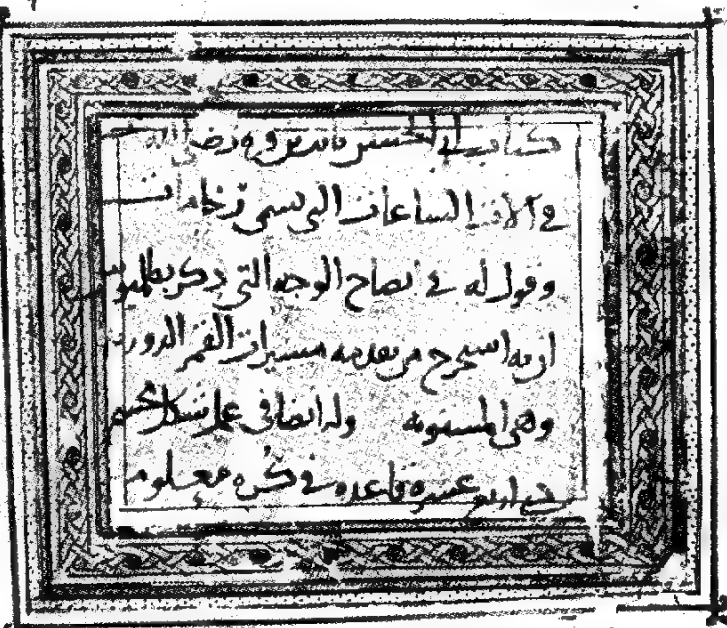 كتاب ابي الحسن ثابت بن قرة رضي الله عنه
في آلات الساعات التي تسمى رخامات
وقول له في ايضاح الوجه التي ذكر بطلميوس
ان به استخرج من تقدمه مسيرات القمر الدورية
وهي المستوية وله ايضا في عمل شكل مجسم
ذي اربع عشرة قاعدة في كرة معلومة